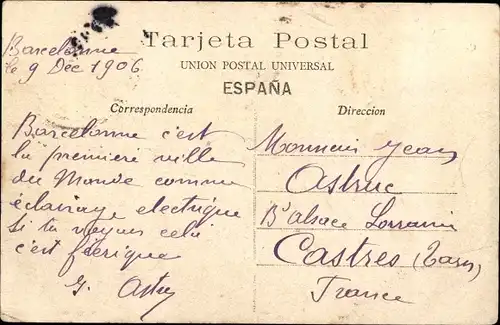 Barcelonne
le 9 Dec 1906
Tarjeta Postal
UNION POSTAL UNIVERSAL
ESPAÑA
Correspondencia
Direccion
Barcelonne c'est
la premiere ville
du Monde comme
éclairage electrique
Si tu voyais cela
c'est féerique
Monsieur Jean
Astruc
Bd alsace Lorraine
Castres (Tarn)
France